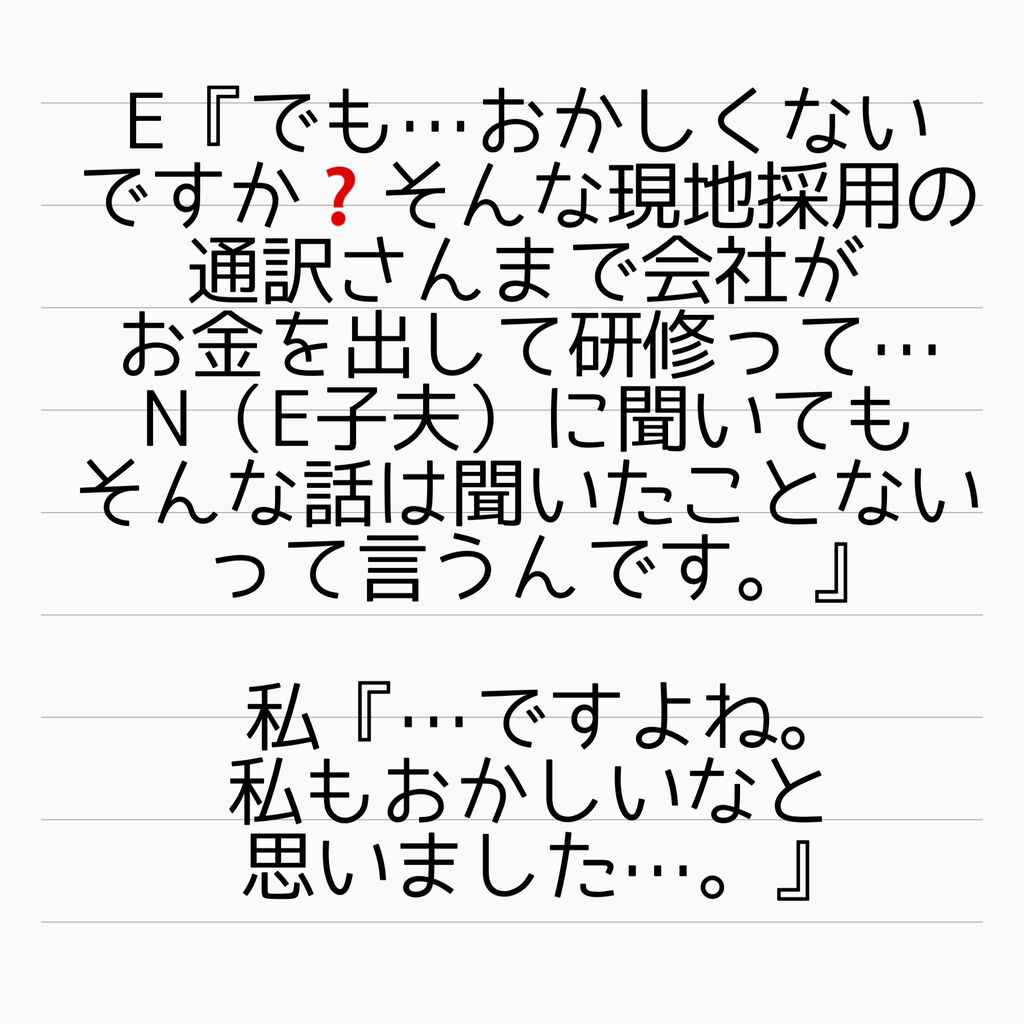 E『でも…おかしくない
ですか❓そんな現地採用の
通訳さんまで会社が
お金を出して研修って…
N（E子夫）に聞いても
そんな話は聞いたことない
って言うんです。』
私『…ですよね。
私もおかしいなと
思いました…。』